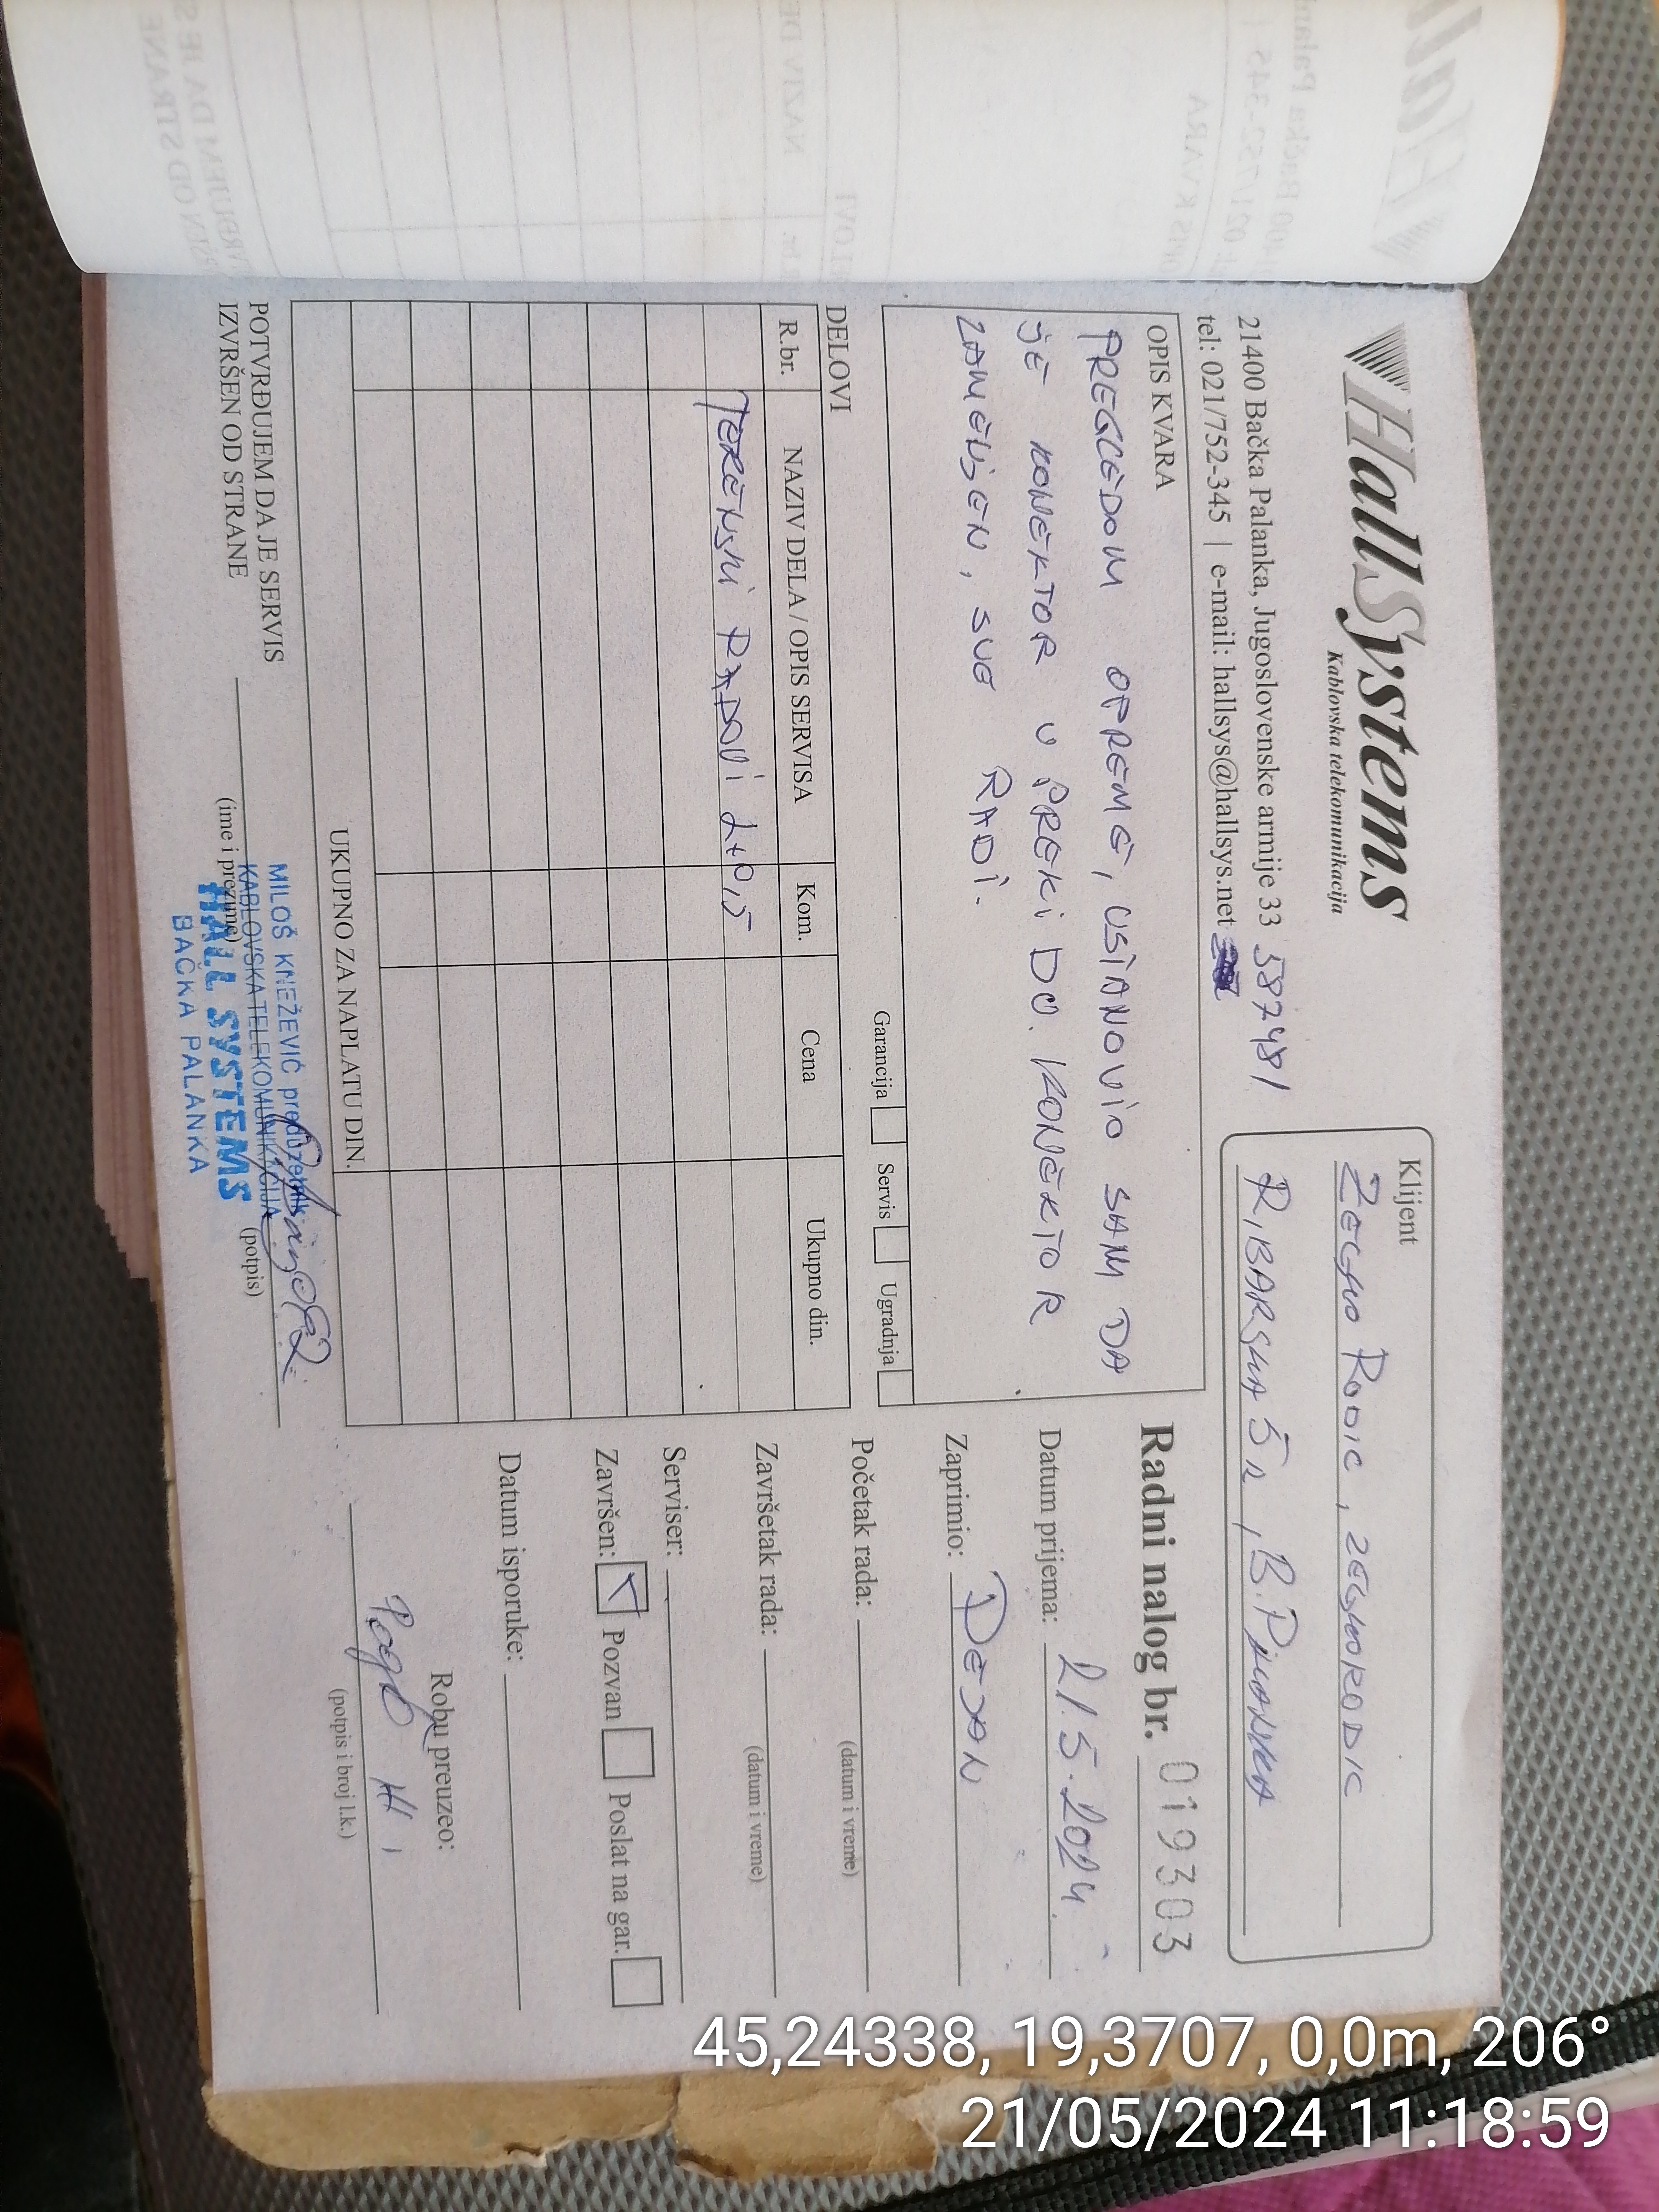 HallSystems
Kablovska telekomunikacija
21400 Bačka Palanka, Jugoslovenske armije 33 587481
tel: 021/752-345 | e-mail: hallsys@hallsys.net
Klijent
ZELJKO RODIC, ZELJKORODIC
RIBARSKA 52, B. PALANKA
OPIS KVARA
PREGLEDOM OPREME, USTANOVIO SAM DA
JE KONEKTOR U PREKIDU. KONEKTOR
ZAMENJEN, SVE RADI.
Garancija Servis Ugradnja
DELOVI
R.br. NAZIV DELA / OPIS SERVISA Kom. Cena Ukupno din.
TERENSKI RADOVI 1+0,5
UKUPNO ZA NAPLATU DIN.
POTVRĐUJEM DA JE SERVIS
IZVRŠEN OD STRANE
(ime i prezime)
(potpis)
MILOŠ KNEŽEVIĆ preduzetnik
KABLOVSKA TELEKOMUNIKACIJA
HALL SYSTEMS
BAČKA PALANKA
Radni nalog br. 019303
Datum prijema: 21.5.2024.
Zaprimio: DEJAN
Početak rada:
(datum i vreme)
Završetak rada:
(datum i vreme)
Serviser:
Završen: Pozvan Poslat na gar.
Datum isporuke:
Robu preuzeo:
(potpis i broj l.k.)
45,24338, 19,3707, 0,0m, 206°
21/05/2024 11:18:59